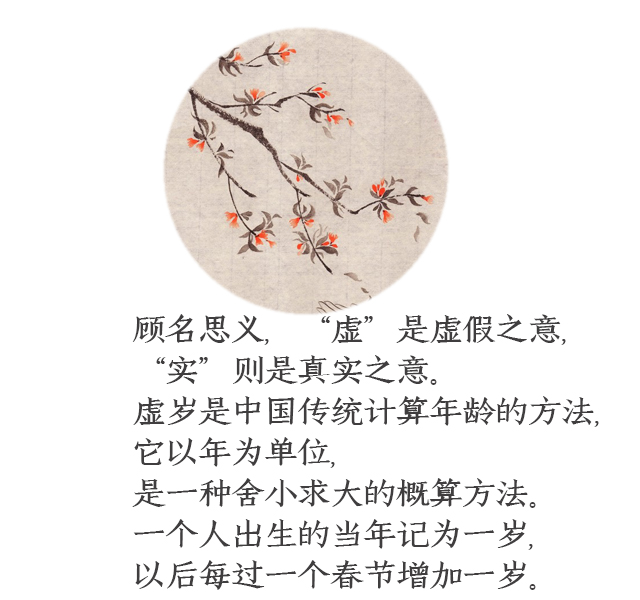 顾名思义，“虚”是虚假之意，
“实”则是真实之意。
虚岁是中国传统计算年龄的方法，
它以年为单位，
是一种舍小求大的概算方法。
一个人出生的当年记为一岁，
以后每过一个春节增加一岁。